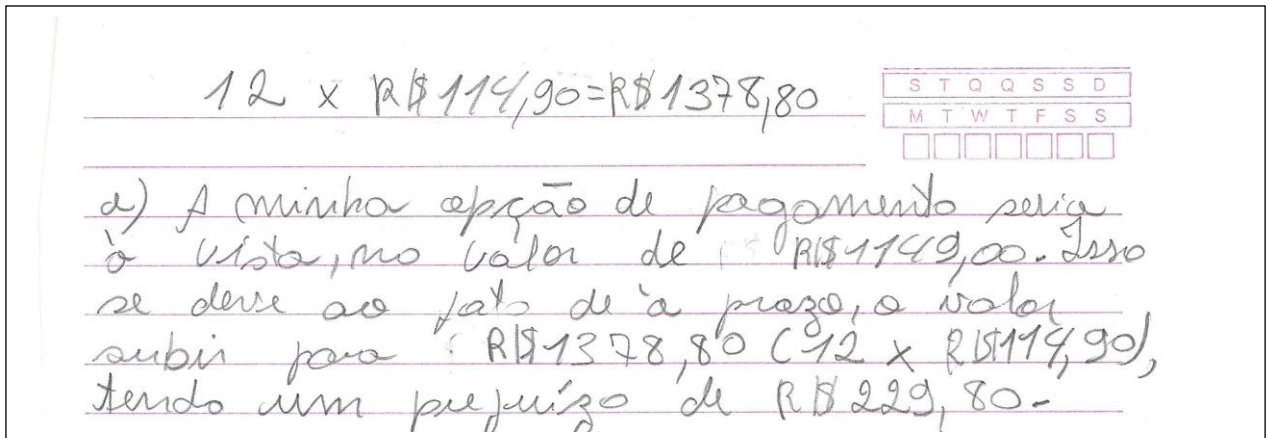 12 x R$114,90=R$1378,80
S T Q Q S S D
M T W T F S S
a) A minha opção de pagamento seria
à vista, no valor de R$1149,00. Isso
se deve ao fato de à prazo, o valor
subir para R$1378,80 (12 x R$114,90),
tendo um prejuízo de R$229,80.